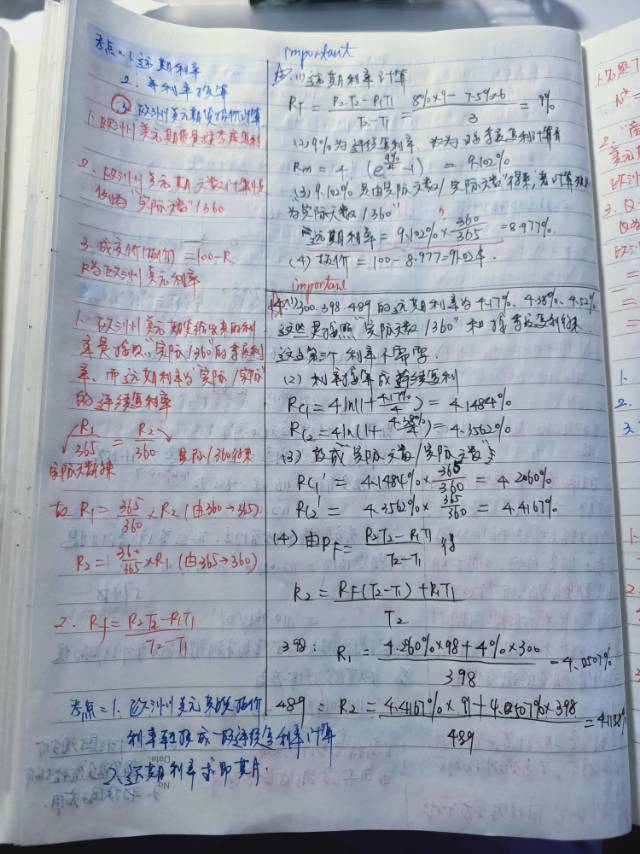 important
考点=1.远期利率
2.等利率换算
③欧洲美元期货报价计算
1.欧洲美元期货按季度复利
2.欧洲美元期天数计算惯
例为"实际天数"/360
3.成交价(报价)=100-R
R为欧洲美元利率
1.欧洲美元期货给出来的利
率是按照"实际/360"的季度复利
率,而远期利率为"实际/实际"
的连续复利率
R1/365 = R2/360
实际天数得来 实际/360得来
故 R1=365/360×R2(由360→365)
R2=360/365×R1(由365→360)
2. Rf=R2T2-R1T1/T2-T1
考点=1.欧洲美元期货报价
利率互换示-的连续复利率计算
2.远期利率求即期.
五(1)远期利率计算
Rf=R2T2-R1T1/T2-T1=8%×9-7.5%×6/3=9%
(2)9%为连续复利率
Rm=4·(e^9%/4-1)=9.102%
(3)9.102%是由实际天数/实际天数得来,若计算
为实际天数/360"
远期利率=9.102%×360/365=8.977%
(4)报价=100-8.977=91.02
important
300.398.489的远期利率为4.17%、4.38%、4.52%
这些是按照"实际天数/360"和按季度复利得来
这边第三个利率不需要.
(2)利率换算成连续复利
RC1=4ln(1+4.17%/4)=4.1484%
RC2=4ln(1+4.38%/4)=4.3562%
(3)变成"实际天数/实际天数"
RC1'=4.1484%×365/360=4.2060%
RC2'=4.3562%×365/360=4.4167%
(4)由Rf=R2T2-R1T1/T2-T1得
R2=RF(T2-T1)+R1T1/T2
398: R1=4.260%×98+4%×300/398=4.0507%
489=R2=4.4167%×91+4.0507%×398/489=